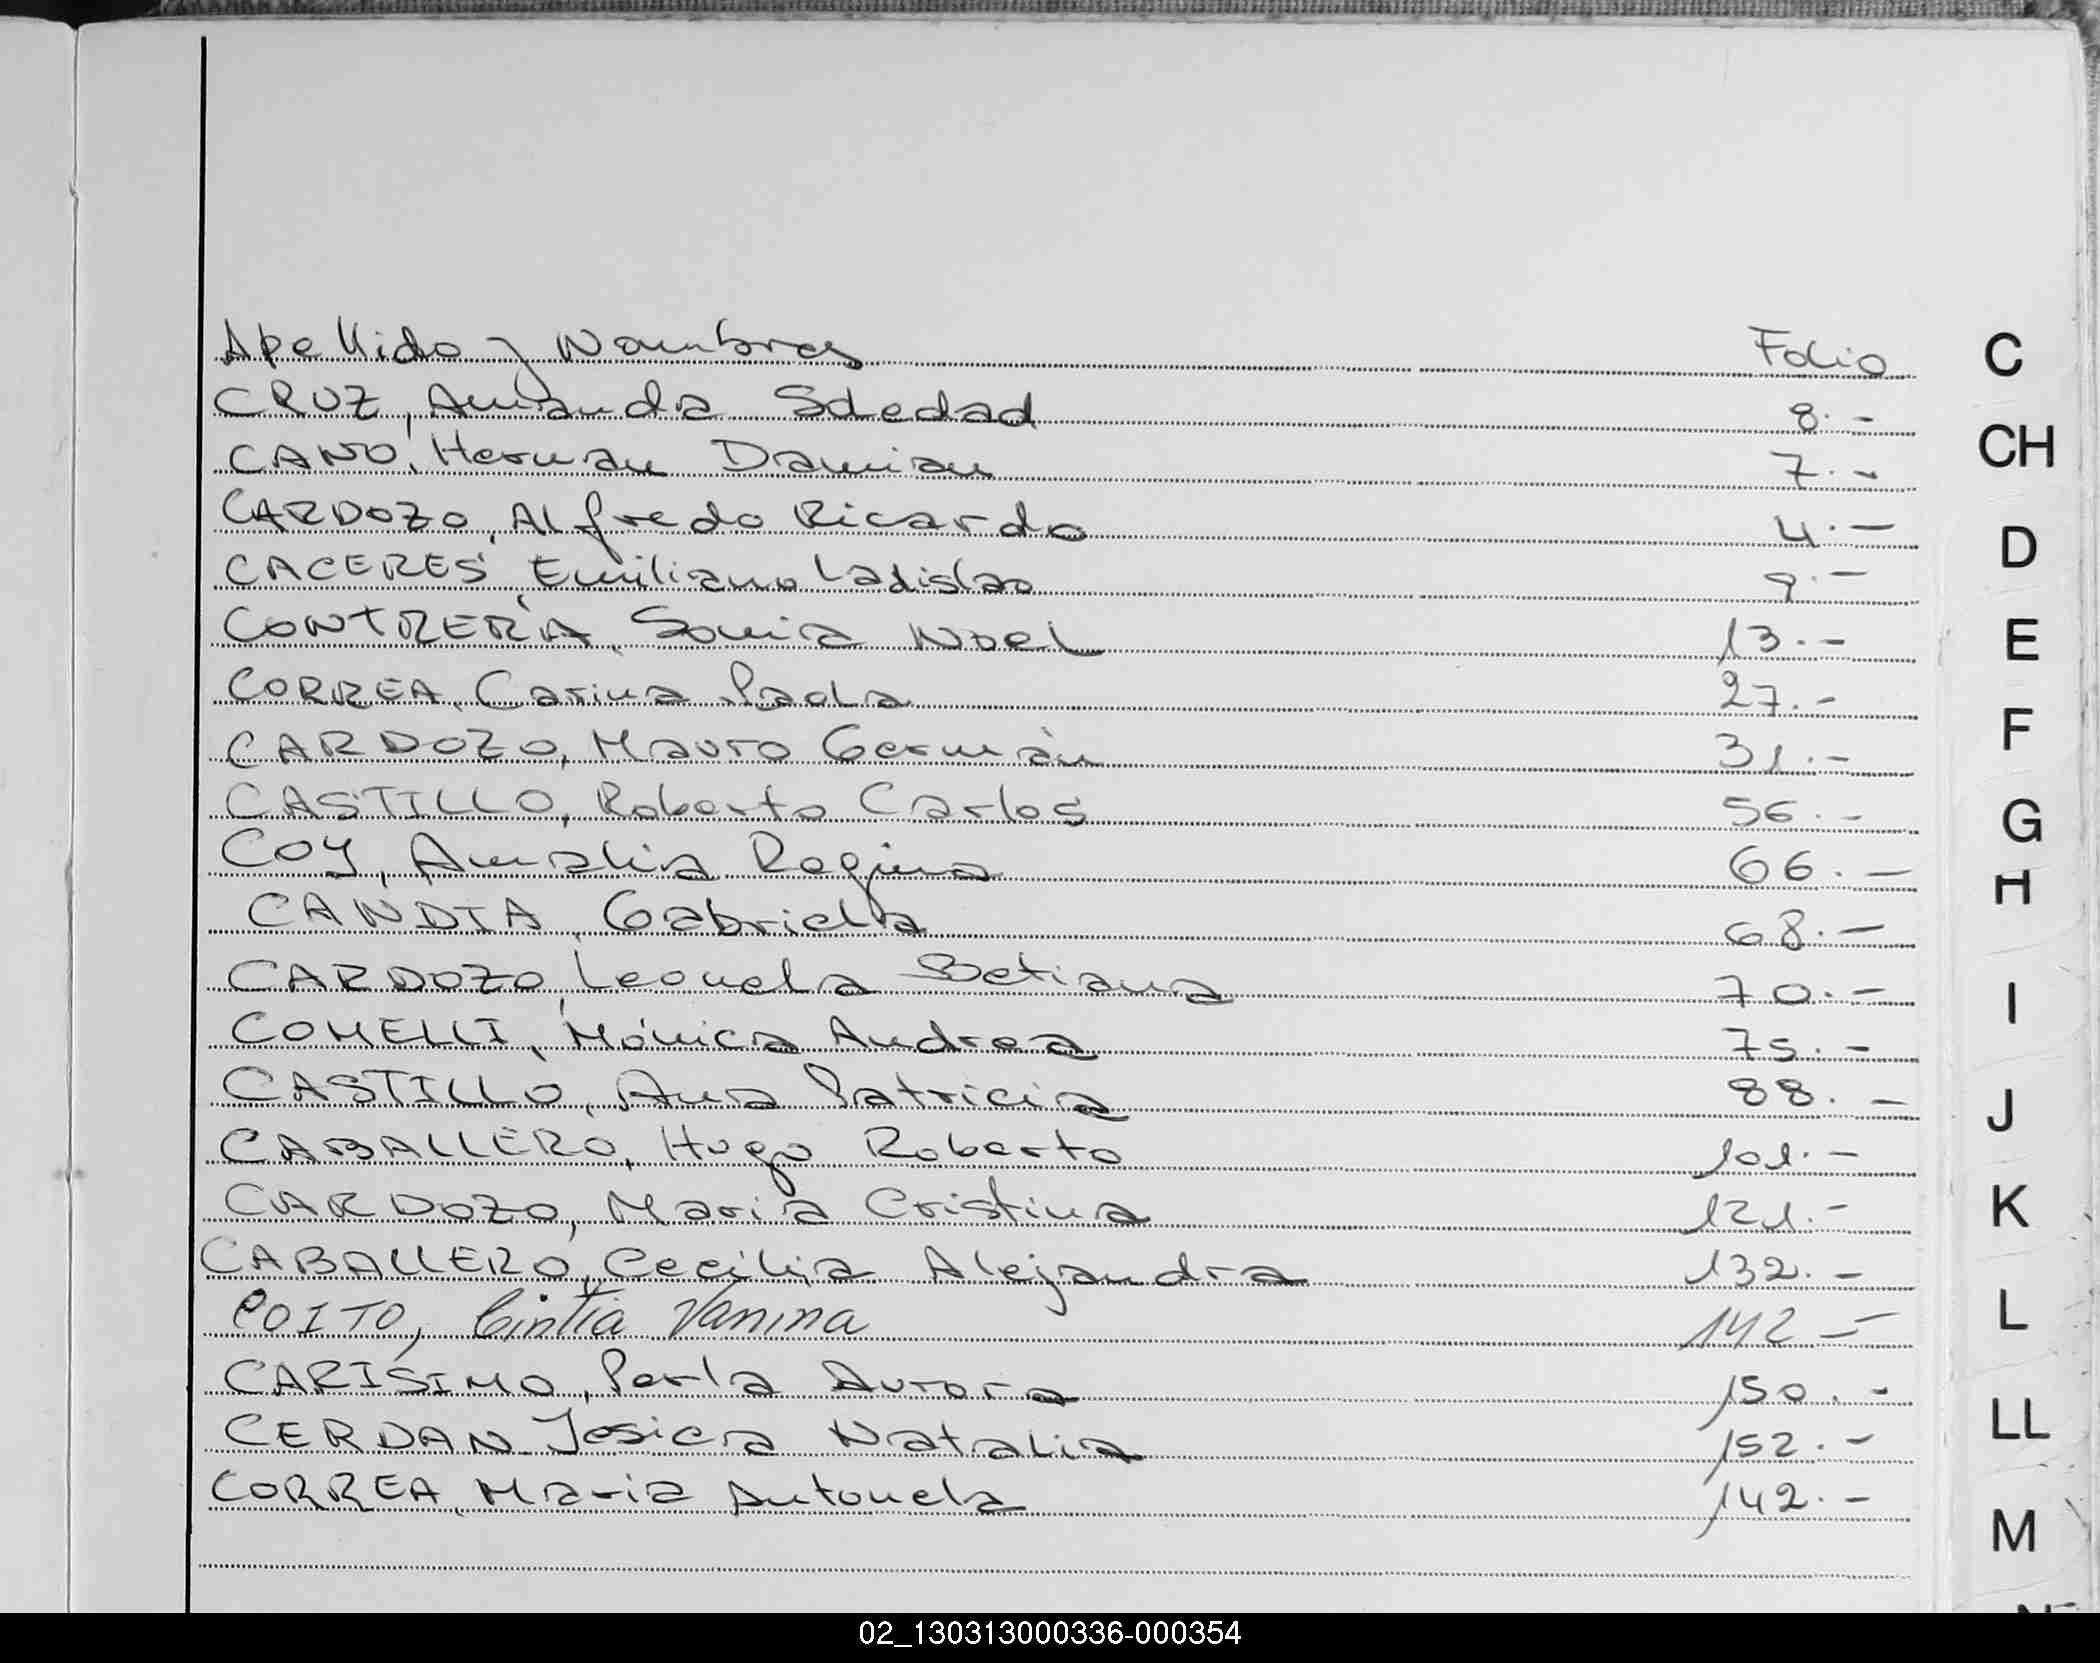 Apellido y Nombres Folio
CRUZ, Amanda Soledad 8.-
CANO, Hernan Damian 7.-
CARDOZO, Alfredo Ricardo 4.-
CACERES, Emiliano Ladislao 9.-
CONTRERA, Sonia Noel 13.-
CORREA, Carina Paola 27.-
CARDOZO, Mauro Germán 31.-
CASTILLO, Roberto Carlos 56.-
COY, Amalia Regina 66.-
CANDIA, Gabriela 68.-
CARDOZO, Leonela Betiana 70.-
COMELLI, Mónica Andrea 75.-
CASTILLO, Ana Patricia 88.-
CABALLERO, Hugo Roberto 101.-
CARDOZO, Maria Cristina 121.-
CABALLERO, Cecilia Alejandra 132.-
COITO, Cintia Vanina 142-
CARISIMO, Perla Aurora 150.-
CERDAN Jesica Natalia 152.-
CORREA, Maria Antonela 142.-
C
CH
D
E
F
G
H
I
J
K
L
LL
M
02_130313000336-000354